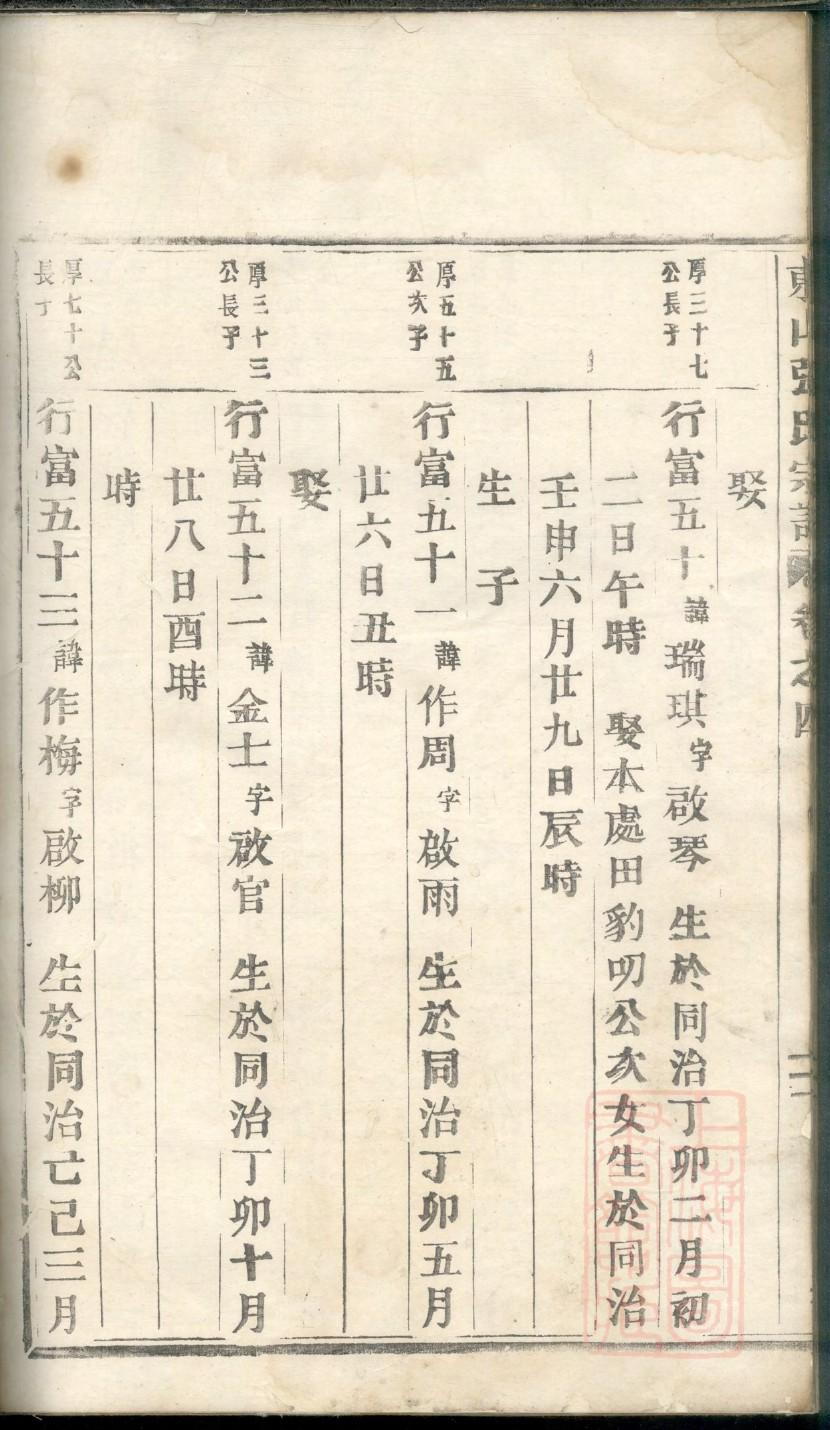 東山張氏宗譜卷之四
二
娶
厚三十七
公長子
行富五十諱瑞琪字啟琴 生於同治丁卯二月初
二日午時 娶本處田豹叨公次女生於同治
壬申六月廿九日辰時
生 子
厚五十五
公次子
行富五十一諱作周字啟雨 生於同治丁卯五月
廿六日丑時
娶
厚三十三
公長子
行富五十二諱金士字啟官 生於同治丁卯十月
廿八日酉時
時
厚七十公
長子
行富五十三諱作梅字啟柳 生於同治亡己三月